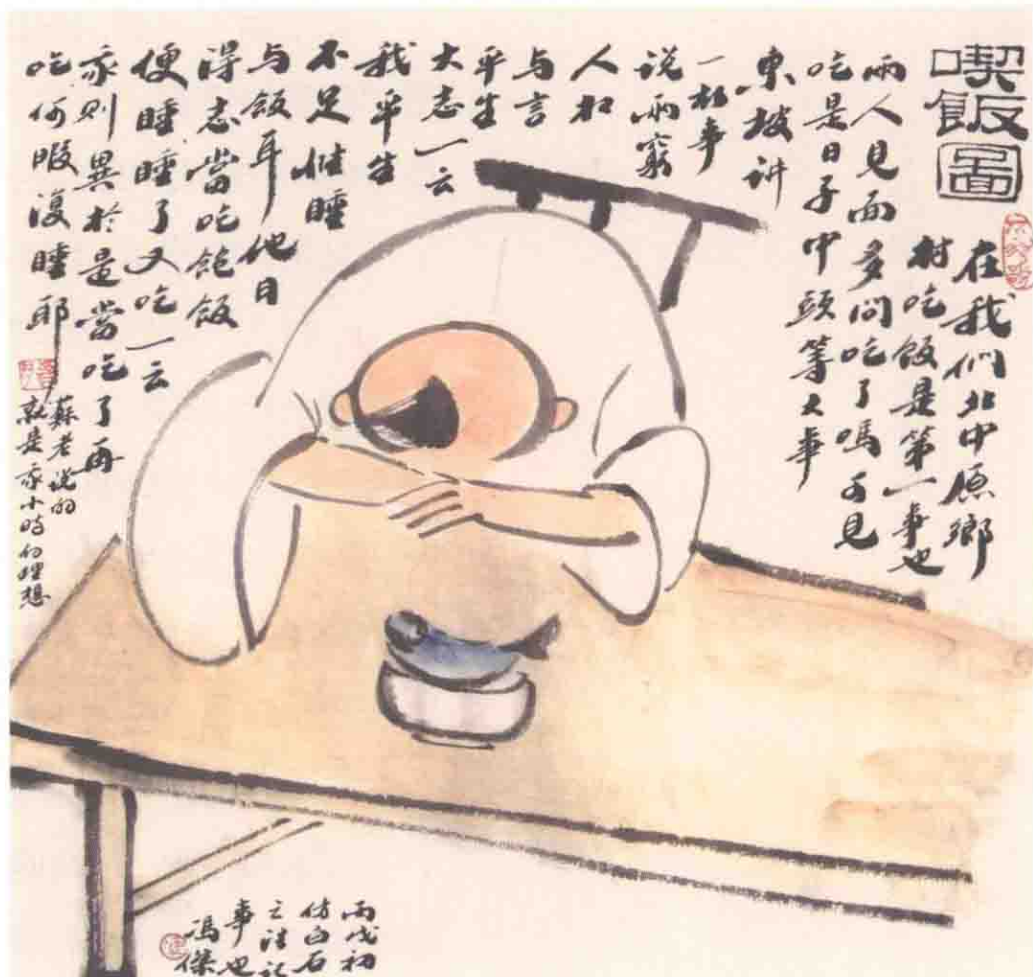 喫飯圖
在我們北中原鄉
村吃飯是第一事也
兩人見面多問吃了嗎可見
吃是日子中頭等大事
東坡讲
一桩事
说兩窮
人相
与言
平生
大志一云
我平生
不足惟睡
与飯耳他日
得志當吃飽飯
便睡睡了又吃一云
我則異於是當吃了再
吃何暇復睡耶
蘇老说的
就是我小時的理想
丙戌初
仿白石
之法记
事也
馮傑